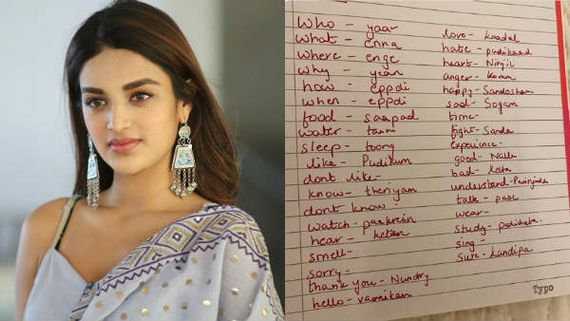 who - yaar
what - enna
where - enge
why - yean
how - eppdi
when - eppdi
food - saapad
water - tanni
sleep - toong
like - Pudikum
dont like -
know - theriyam
dont know -
watch - paakrein
hear - ketan
smell -
sorry -
thank you - Nundry
hello - vannikam
love - kaadal
hate -
heart - Ninjil
anger - Kovam
happy - Sandosham
sad - Sogam
time -
fight - Sanda
experience -
good - Nalla
bad - Keta
understand -
talk - pasl
wear -
study -
sing -
sure - Kandipa
Typo